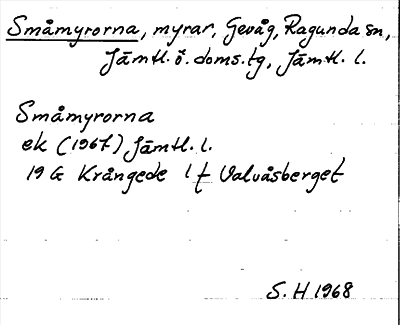 Småmyrorna, myrar, Gevåg, Ragunda sn,
Jämtl. ö. doms. tg, Jämtl. l.
Småmyrorna
ek (1967) Jämtl. l.
19 G Krångede 1 f Valvåsberget
S. H 1968